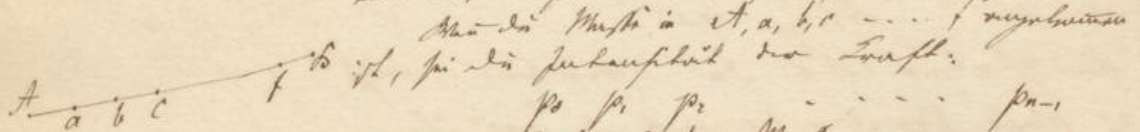 Wenn die Masse in A, a, b, c - - - - f angekommen
ist, sei die Intensität der Kraft:
A a b c f B
p₀ p₁ p₂ - - - - - pₙ₋₁